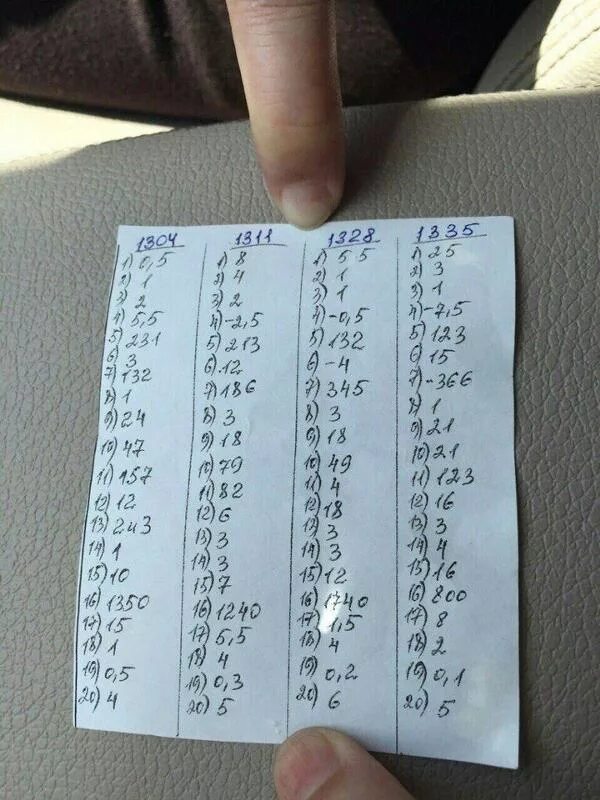 1304
1) 0,5
2) 1
3) 2
4) 5,5
5) 231
6) 3
7) 132
8) 1
9) 24
10) 47
11) 157
12) 12
13) 243
14) 1
15) 10
16) 1350
17) 15
18) 1
19) 0,5
20) 4
1311
1) 8
2) 4
3) 2
4) -2,5
5) 213
6) 12
7) 186
8) 3
9) 18
10) 79
11) 82
12) 6
13) 3
14) 3
15) 7
16) 1240
17) 5,5
18) 4
19) 0,3
20) 5
1328
1) 5 5
2) 1
3) 1
4) -0,5
5) 132
6) -4
7) 345
8) 3
9) 18
10) 49
11) 4
12) 18
13) 3
14) 3
15) 12
16) 1740
17) 1,5
18) 4
19) 0,2
20) 6
1335
1) 25
2) 3
3) 1
4) -7,5
5) 123
6) 15
7) -366
8) 1
9) 21
10) 21
11) 123
12) 16
13) 3
14) 4
15) 16
16) 800
17) 8
18) 2
19) 0,1
20) 5